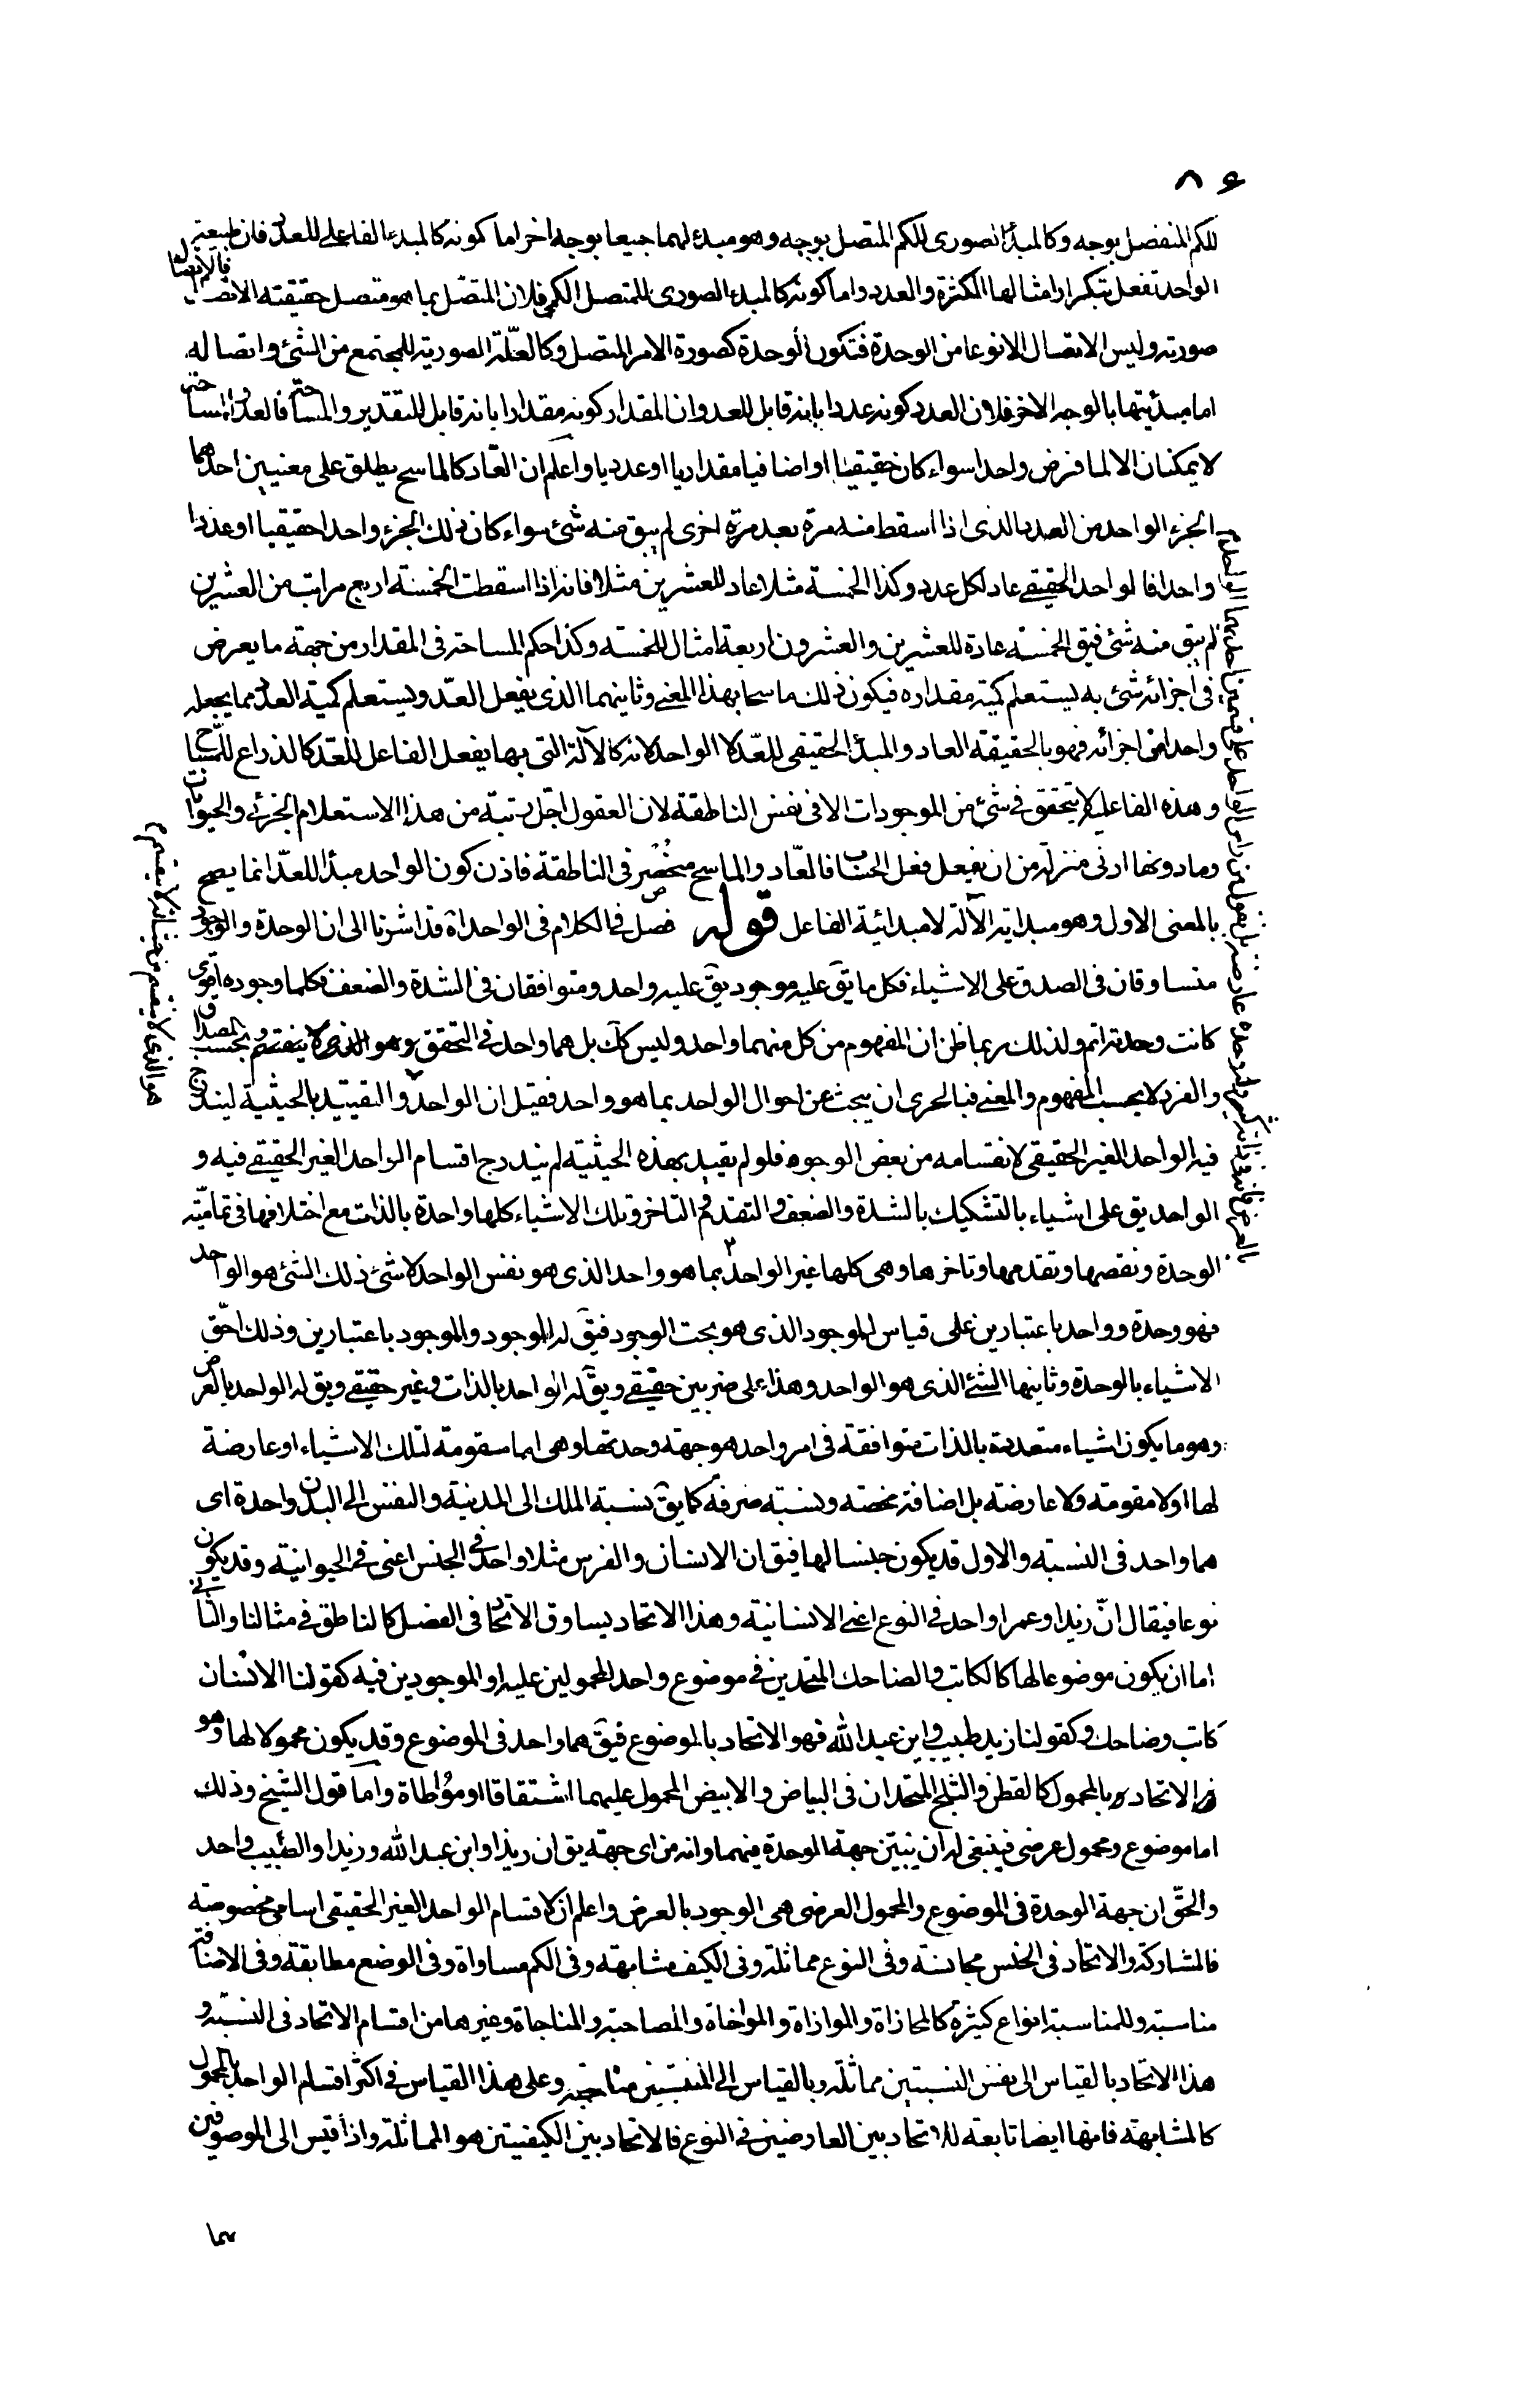 ٨٦
للكم المنفصل بوجه وكالمبدأ الصورى للكم المتصل بوجه وهو مبدء لهما جميعا بوجه اخر اما كونه كالمبدء الفاعلى للعدد فان طبيعة
الواحد تفعل بتكرار امثالها الكثرة والعدد واما كونه كالمبدء الصورى للمتصل الكمى فلان المتصل بما هو متصل حقيقته الاتصـ فالاتصال
صورته وليس الاتصال الا نوعا من الوحدة فتكون الوحدة كصورة الامر المتصل وكالعلّة الصورية للمجتمع من الشئ واتصاله
اما مبدئيتها بالوجه الاخر فلان العدد كونه عددا بانه قابل للعد وان المقدار كونه مقدارا بانه قابل للتقدير والمساحة فالعد والمساحة
لا يمكنان الا لما فرض واحدا سواء كان حقيقيا او اضافيا مقداريا او عدديا واعلم ان العّاد كالماسح يطلق على معنيين احدهما
الجزء الواحد من العدد الذى اذا اسقط منه مرة بعد مرة اخرى لم يبق منه شئ سواء كان ذلك الجزء واحدا حقيقيا او عددا
واحدا فالواحد الحقيقى عاد لكل عدد وكذا الخمسة مثلا عاد للعشرين مثلا فانه اذا اسقطت الخمسة اربع مراتب من العشرين
لم يبق منه شئ فيق الخمسة عادة للعشرين والعشرون اربعة امثال للخمسة وكذا حكم المساحة فى المقدار من جهة ما يعرض
فى اجزائه شئ به يستعلم كمية مقداره فيكون ذلك ماسحا بهذا المعنى وثانيهما الذى يفعل العدّ ويستعلم كمية العدد مما يجعله
واحدا من اجزائه فهو بالحقيقة العاد والمبدأ الحقيقى للعدّ لا الواحد لانه كالآلة التى بها يفعل الفاعل للعدّ كالذراع للمسّاح
وهذه الفاعلية لا يتحقق فى شئ من الموجودات الا فى نفس الناطقة لان العقول اجّل رتبة من هذا الاستعلام الجزئى والحيوانات
وما دونها ادنى منزلة من ان يفعل فعل الحساب فالعّاد والماسح منحصر فى الناطقة فاذن كون الواحد مبدأ للعدّ انما يصح
بالمعنى الاول وهو مبداية الآلة لا مبدائية الفاعل قوله فصل فى الكلام فى الواحد اه قد اشرنا الى ان الوحدة والوجود
متساوقان فى الصدق على الاشياء فكل ما يق عليه موجود يق عليه واحد ومتوافقان فى الشدة والضعف فكلما وجوده اقوى
كانت وحدته اتم ولذلك ربما ظن ان المفهوم من كل منهما واحد وليس كك بل هما واحد فى التحقق بحسب المصداق
والفرد لا بحسب المفهوم والمعنى فبالحرى ان يبحث عن احوال الواحد بما هو واحد فقيل ان الواحد والتقييد بالحيثية ليندرج
فيه الواحد الغير الحقيقى لانقسامه من بعض الوجوه فلو لم يقيد بهذه الحيثية لم يندرج اقسام الواحد الغير الحقيقى فيه و
الواحد يق على اشياء بالتشكيك بالشدة والضعف والتقدم والتاخر وتلك الاشياء كلها واحدة بالذات مع اختلافها فى تماميّة
الوحدة ونقصها وتقدمها وتاخرها وهى كلها غير الواحد بما هو واحد الذى هو نفس الواحد لا شئ ذلك الشئ هو الواحد
فهو وحدة وواحد باعتبارين على قياس الموجود الذى هو بحت الوجود فيق له الوجود والموجود باعتبارين وذلك احّق
الاشياء بالوحدة وثانيها الشئ الذى هو الواحد وهذا على ضربين حقيقى ويق له الواحد بالذات وغير حقيقى ويق له الواحد بالعرض
وهو ما يكون اشياء متعددة بالذات متوافقة فى امر واحد هو جهة وحدتها وهى اما مقومة لتلك الاشياء او عارضة
لها او لا مقومة ولا عارضة بل اضافة محضة ونسبة صرفة كما يق نسبة الملك الى المدينة والنفس الى البدن واحدة اى
هما واحد فى النسبة والاول قد يكون جنسا لها فيق ان الانسان والفرس مثلا واحد فى الجنس اعنى فى الحيوانية وقد يكون
نوعا فيقال انّ زيدا وعمرا واحد فى النوع اعنى الانسانية وهذا الاتحاد يساوق الاتحاد فى الفصل كالناطق فى مثالنا والثانى
اما ان يكون موضوعا لها كالكاتب والضاحك المتحدين فى موضوع واحد المحمولين عليه او الموجودين فيه كقولنا الانسان
كاتب وضاحك وكقولنا زيد طبيب وابن عبد الله فهو الاتحاد بالموضوع فيق هما واحد فى الموضوع وقد يكون محمولا لها وهو
الاتحاد بالمحمول كالقطن والثلج المتحدان فى البياض والابيض المحمول عليهما اشتقاقا او مؤاطاة واما قول الشيخ وذلك
اما موضوع ومحمول عرضى فينبغى له ان يبيّن جهة الوحدة فيهما وانه من اى جهة يق ان زيدا وابن عبد الله وزيدا والطبيب واحد
والحّق ان جهة الوحدة فى الموضوع والمحمول العرضى هى الوجود بالعرض واعلم ان لاقسام الواحد الغير الحقيقى اسامى مخصوصة
فالمشاركة والاتحاد فى الجنس مجانسة وفى النوع مماثلة وفى الكيف مشابهة وفى الكم مساواة وفى الوضع مطابقة وفى الاضافة
مناسبة وللمناسبة انواع كثيرة كالمحاذاة والموازاة والمواخاة والمصاحبة والمناجاة وغيرها من اقسام الاتحاد فى النسبة و
هذا الاتحاد بالقياس الى نفس النسبتين مماثلة وبالقياس الى المنتسبين مناسبة وعلى هذا القياس فى اكثر اقسام الواحد بالمحمول
كالمشابهة فانها ايضا تابعة للاتحاد بين العارضين فى النوع فالاتحاد بين الكيفيتين هو المماثلة واذا قيس الى الموصوفين
بهما
هو الذى لا ينقسم من حيث انه لا ينقسم